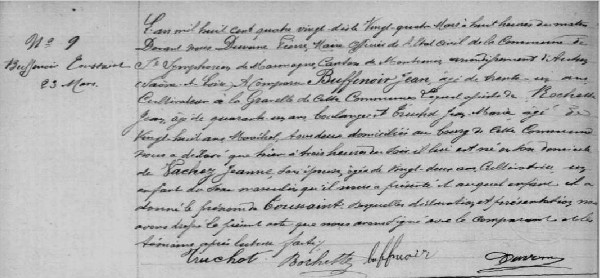 N° 9
Buffenoir Toussaint
23 Mars.
L'an mil huit cent quatre vingt dix le Vingt quatre Mars à huit heures du matin
Devant nous Pierre, Maire officier de l'Etat Civil de la Commune de
St Symphorien de Marmagne, Canton de Montcenis arrondissement d'Autun
Saône et Loire, A Comparu Buffenoir Jean, âgé de trente un ans
Cultivateur à la de Cette Commune, Lequel assisté de Rochette
Jean, âgé de quarante un ans boulanger et Truchot Jean Marie âgé de
Vingt huit ans Maréchal, tous deux domiciliés au bourg de Cette Commune
nous a déclaré que hier à trois heures du soir il lui est né en son domicile
de Vachez Jeanne, son épouse, âgée de Vingt deux ans Cultivatrice, un
enfant du sexe masculin qu'il nous a présenté et auquel enfant il a
donné le prénom de Toussaint. Desquelles déclaration et présentation nous
avons dressé le présent acte que nous avons signé avec le comparant et les
témoins après lecture faite.
Truchot Rochette buffenoir